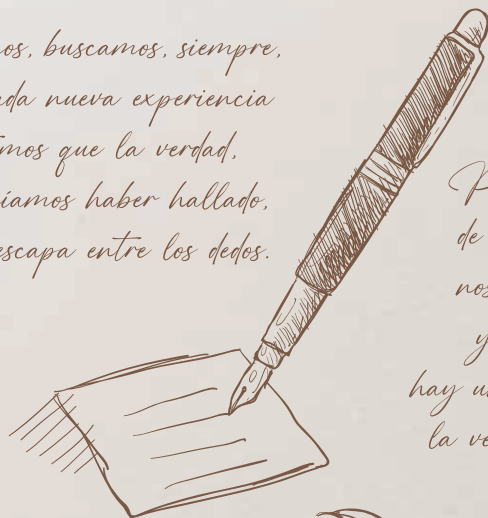 os, buscamos, siempre,
da nueva experiencia
mos que la verdad,
íamos haber hallado,
escapa entre los dedos.
P
de
nos
y
hay u
la ve